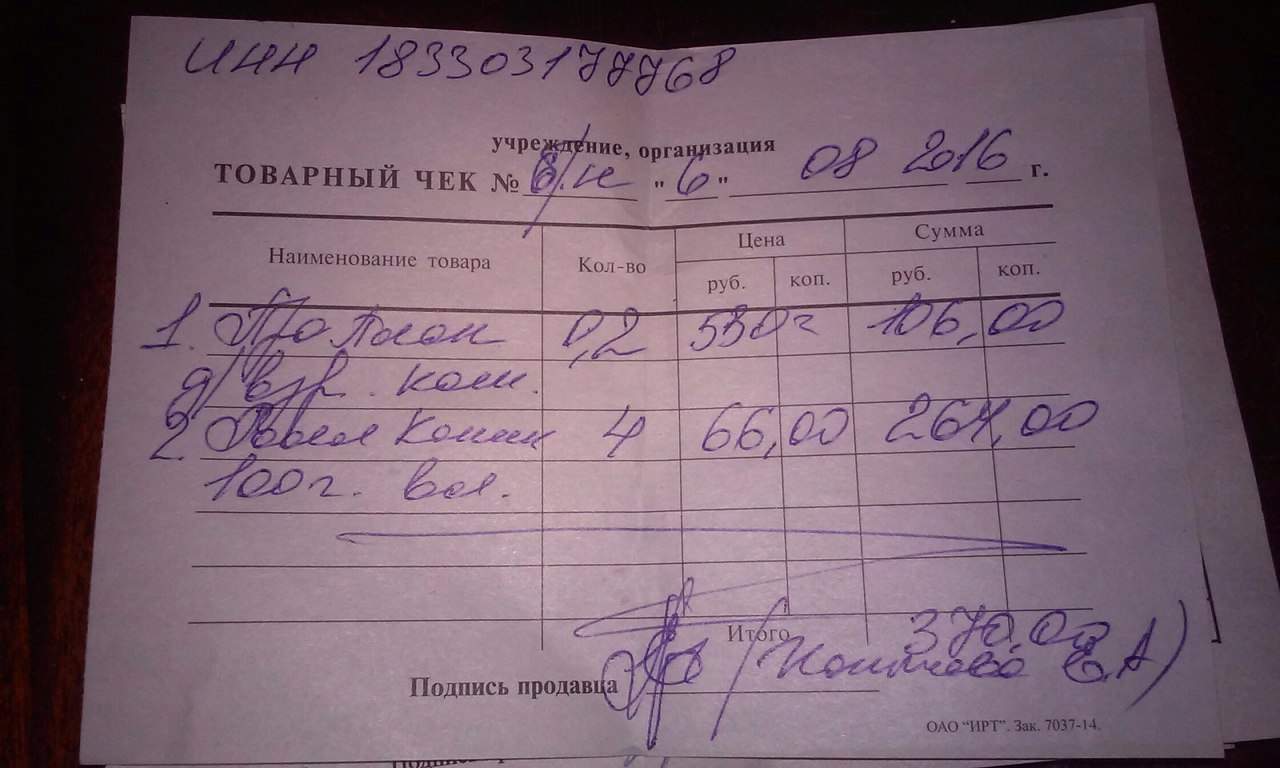 ИНН 183303177768
учреждение, организация
ТОВАРНЫЙ ЧЕК № б/н "6" 08 2016 г.
Наименование товара Кол-во Цена Сумма
руб. коп. руб. коп.
1. ПроПлан 0,2 530 106,00
д/ взр. кош.
2. Роял Конин 4 66,00 264,00
100г. вл.
Итого 370.00
Подпись продавца Е.А)
ОАО "ИРТ". Зак. 7037-14.